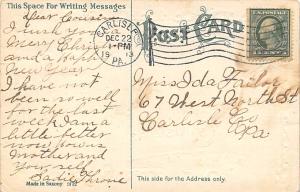 This Space For Writing Messages
Dear Cousin
I wish you a
Merry Christ
and a happy
New Year
I have not
been so well
for the last
week I am a
little better
now
Mother and
yourself
Sadie
Made in Saxony
CARLISLE
DEC 22
1-PM
1913
PA.
POST CARD
Miss Ida
67 West North St
Carlisle
Pa
This side for the Address only.